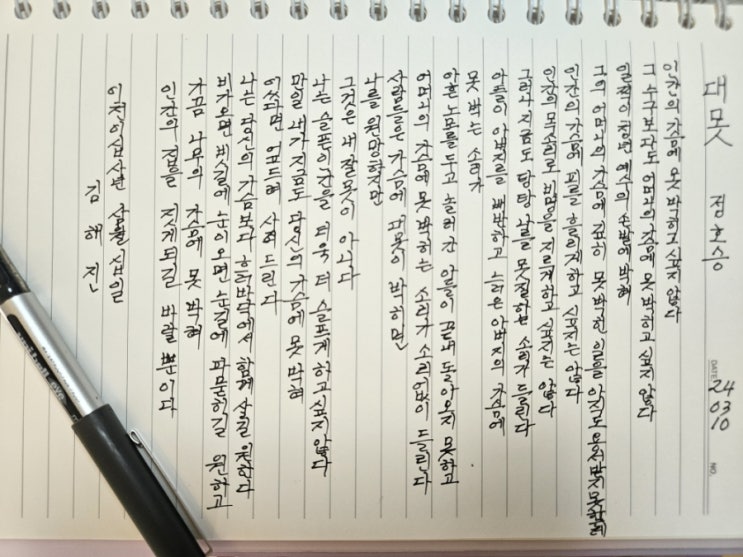 대못 정호승
DATE 24 03 10
NO.
인간의 가슴에 못 박히고 싶지 않다
그 누구보다도 어머니의 가슴에 못 박히고 싶지 않다
일찍이 청년 예수의 손발에 박혀
그의 어머니의 가슴에 깊이 못 박힌 일을 아직도 용서받지 못하는데
인간의 가슴에 피를 흘리게 하고 싶지는 않다
인간의 목소리로 비명을 지르게 하고 싶지는 않다
그러나 지금도 탕탕 나를 못질하는 소리가 들린다
아들이 아버지를 핍박하고 늙은 아버지의 가슴에
못 박는 소리가
아흔 노모를 두고 놀러 간 아들이 끝내 돌아오지 못하고
어머니의 가슴에 못 박히는 소리가 소리없이 들린다
사람들은 가슴에 대못이 박히면
나를 원망하지만
그것은 내 잘못이 아니다
나는 슬픈 인간을 더욱 더 슬프게 하고 싶지 않다
만일 내가 지금도 당신의 가슴에 못 박혀
있다면 엎드려 사죄 드린다
나는 당신의 가슴보다 흙바닥에서 함께 살길 원한다
비가 오면 빗길에 눈이 오면 눈길에 파묻히길 원하고
가끔 나무의 가슴에 못 박혀
인간의 집을 짓게되길 바랄 뿐이다
이천이십사년 삼월 십일
김 해 진
uni-ball eye